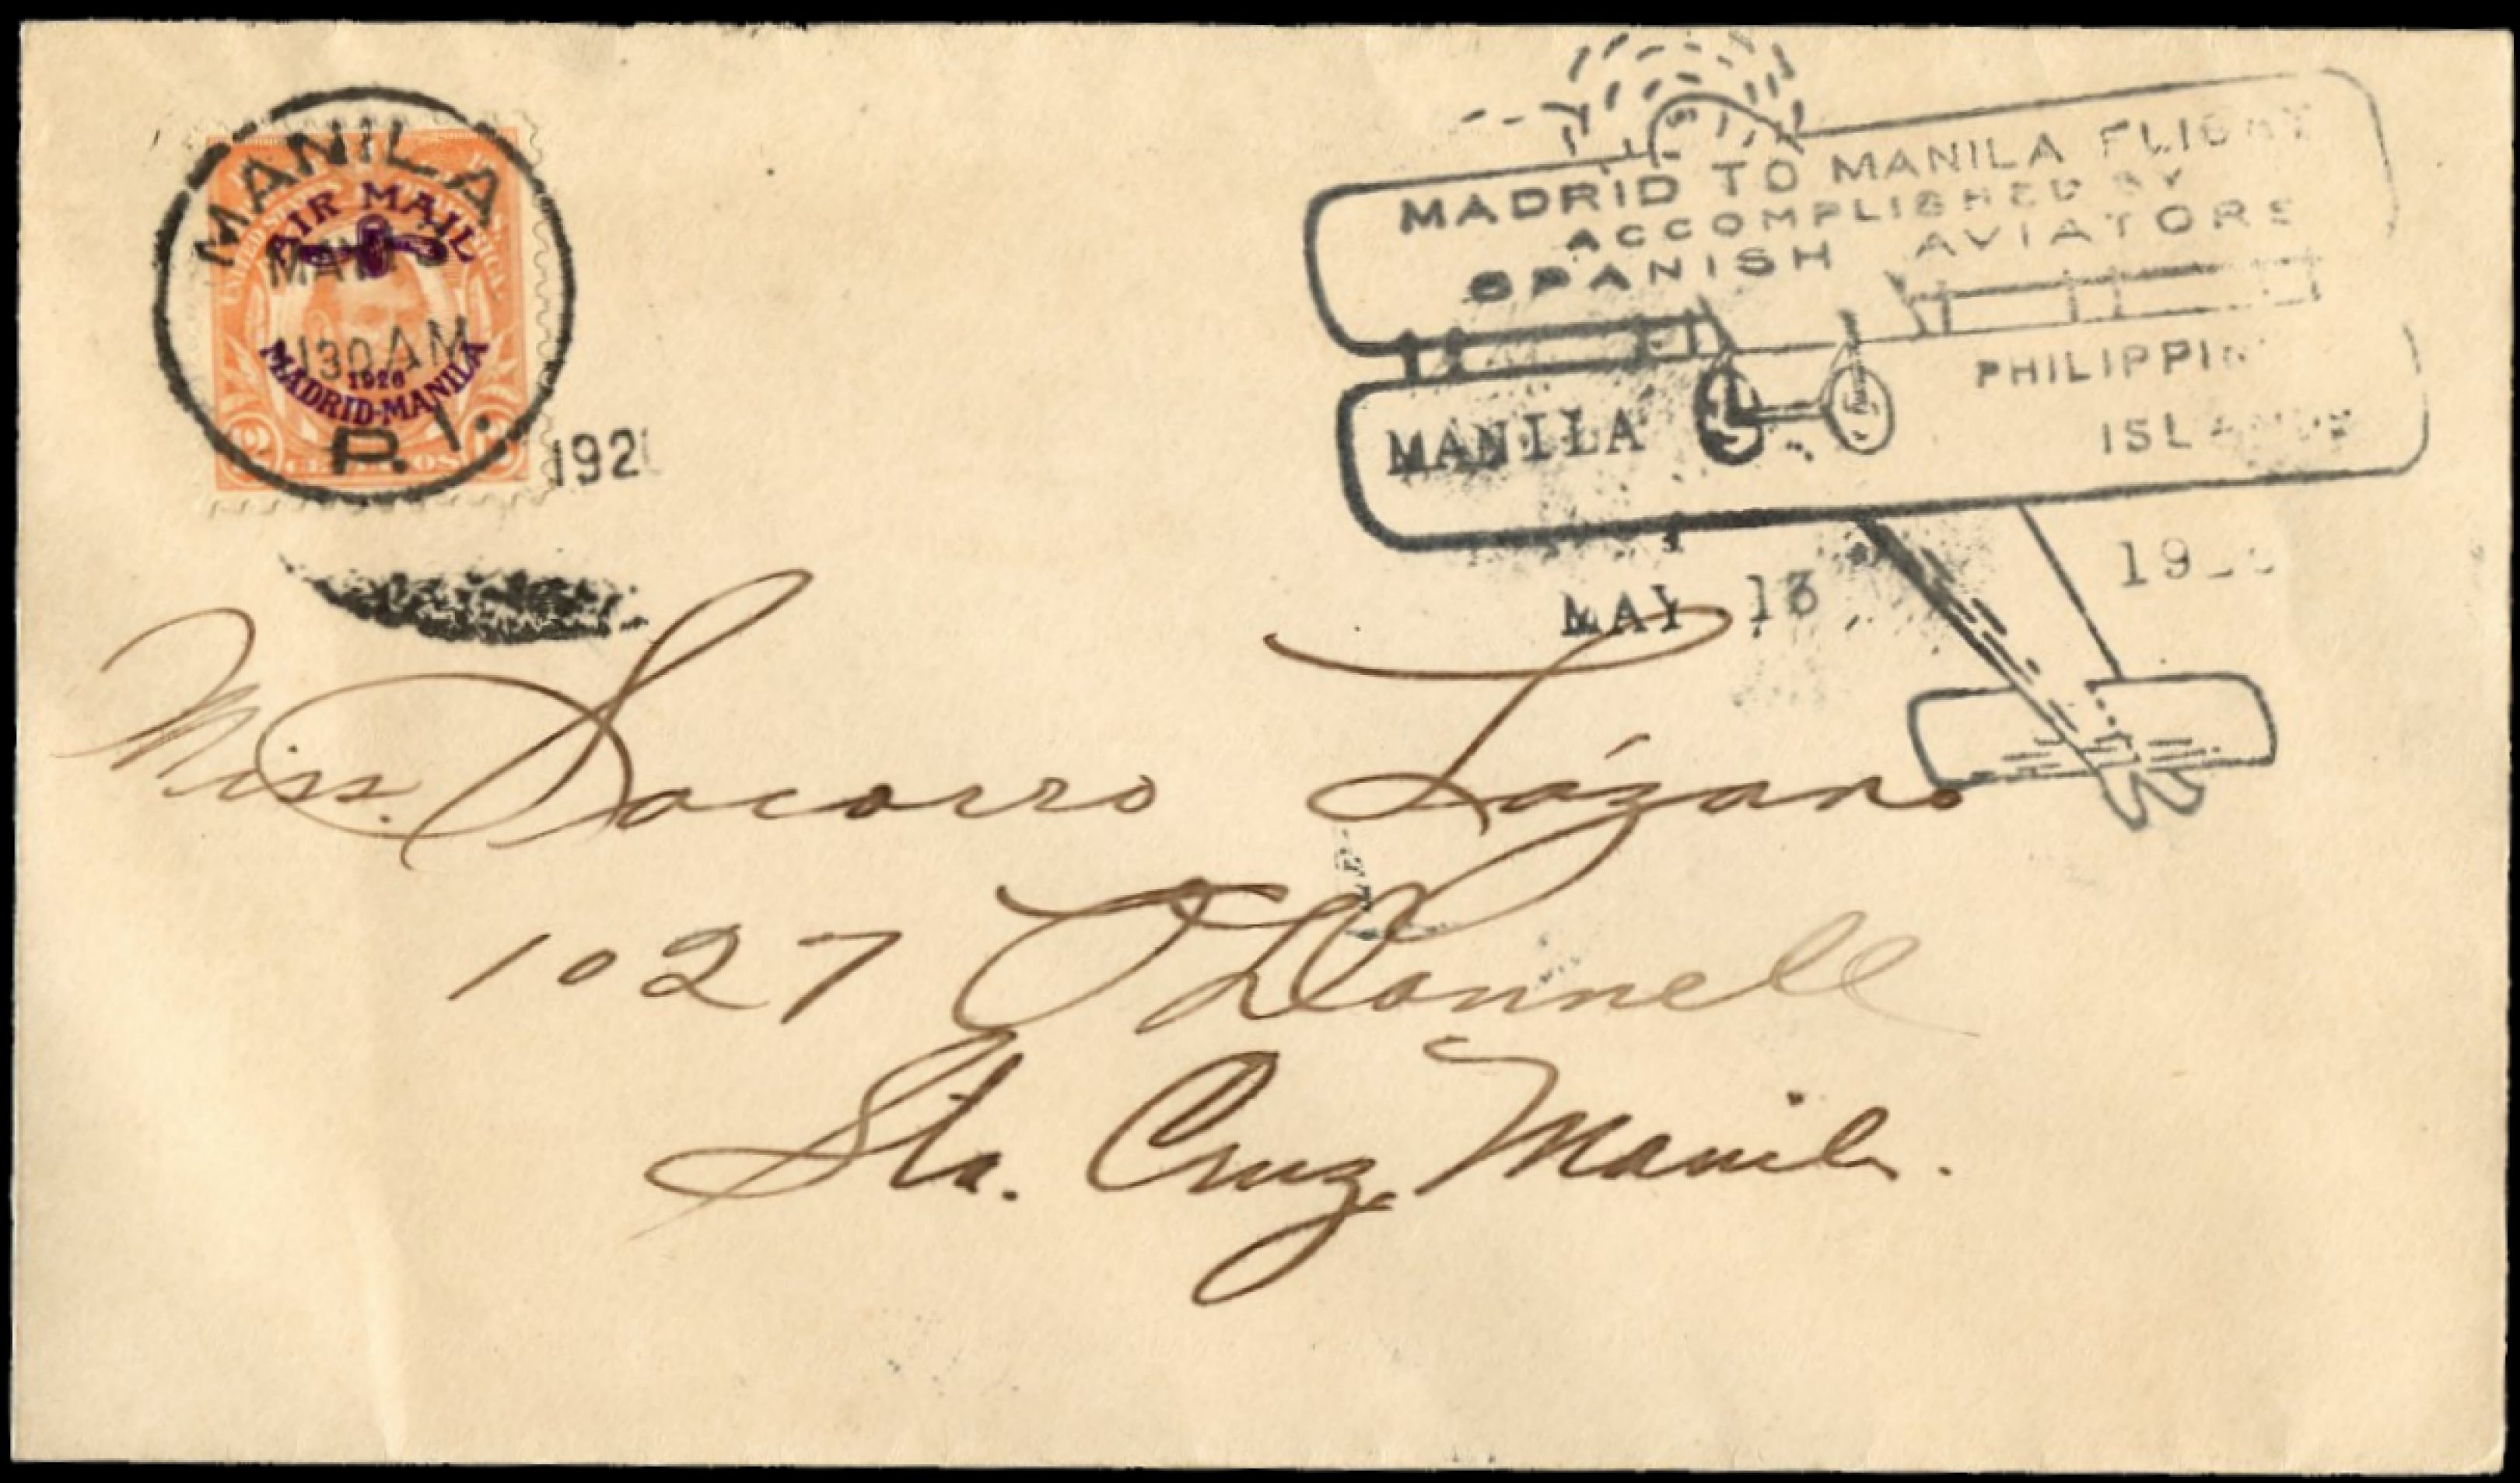 MANILA
AIR MAIL
MAY 13
1130 AM
1926
MADRID-MANILA
P. I.
192
MADRID TO MANILA FLIGHT
ACCOMPLISHED BY
SPANISH AVIATORS
PHILIPPIN
MANILA
ISLANDS
MAY 13
19
Miss. Socorro Lózano
1027 O'Donnell
Sta. Cruz, Manila.